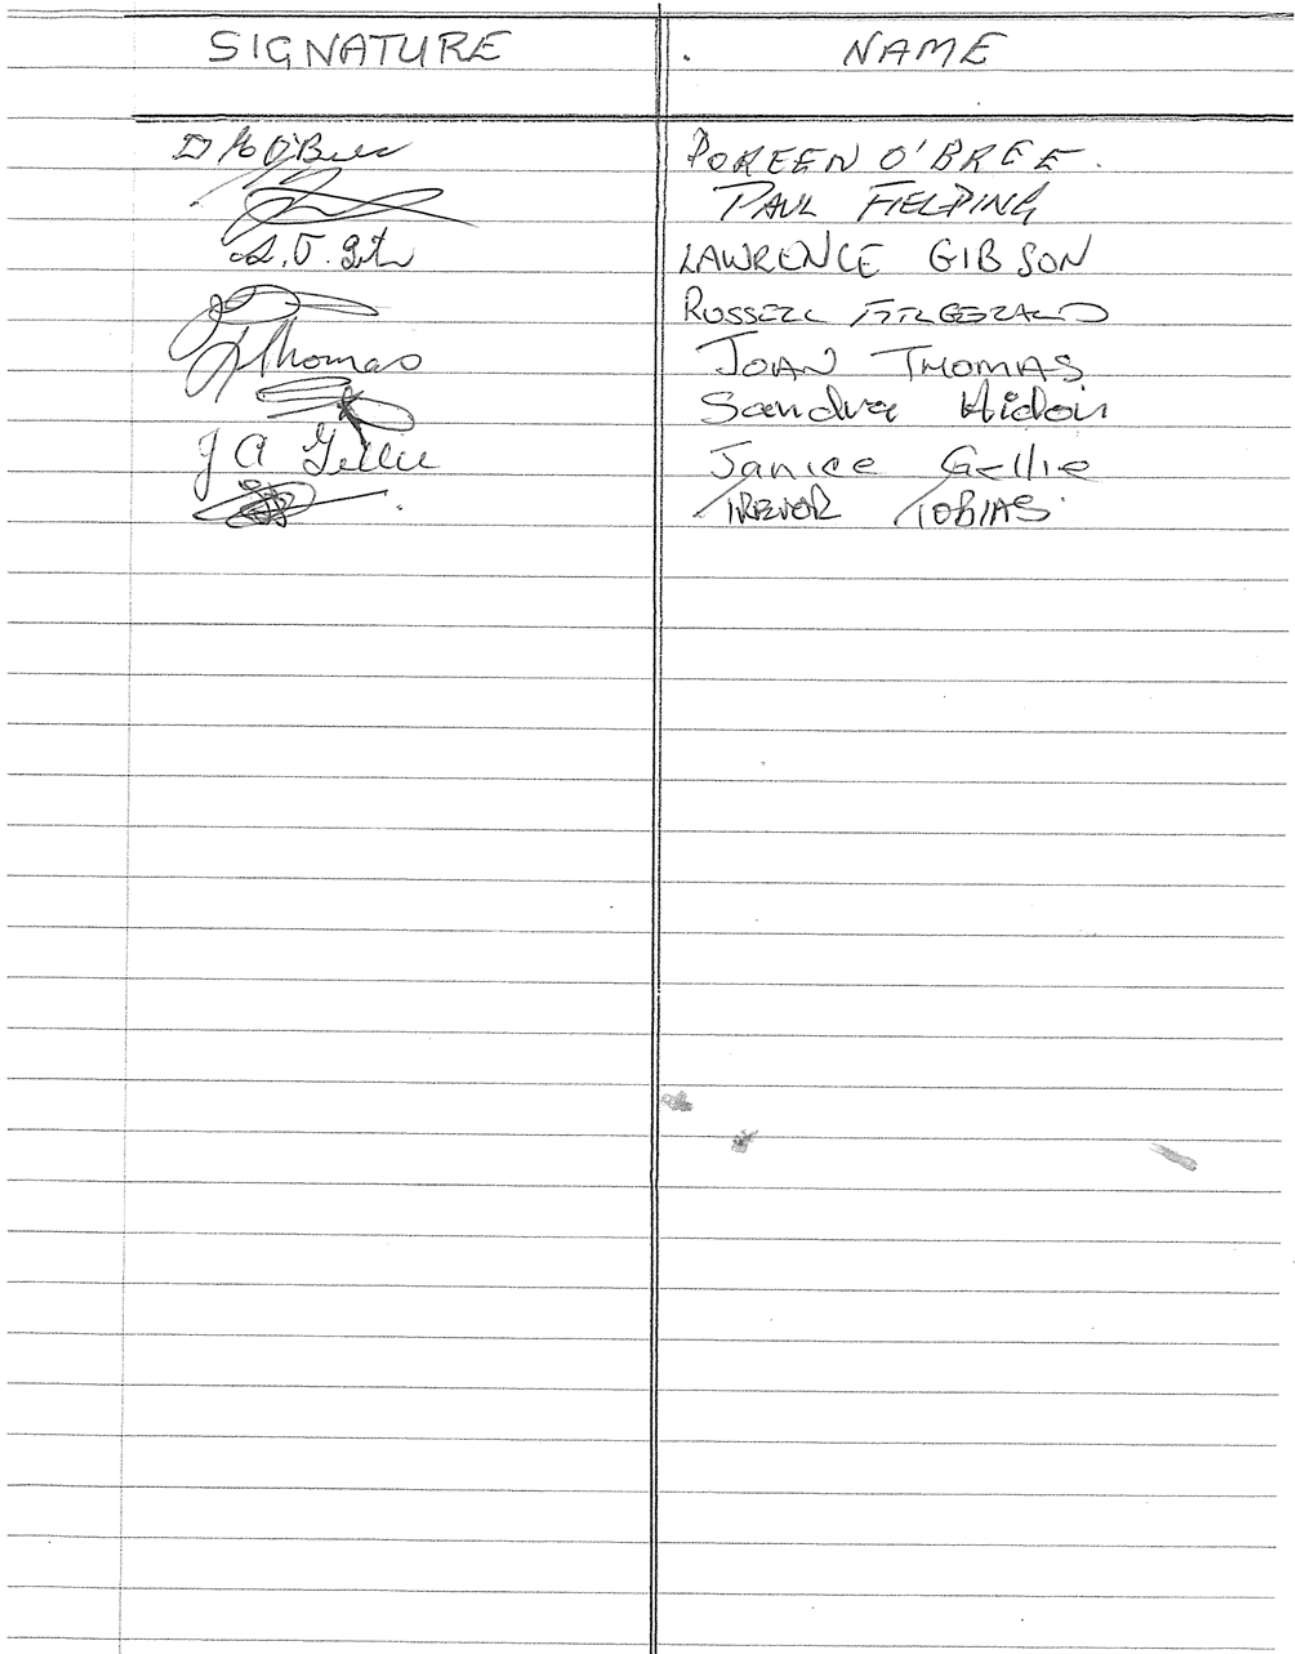 SIGNATURE NAME
D M O'Bree DOREEN O'BREE.
PAUL FIELDING
LAWRENCE GIBSON
RUSSELL FITZGERALD
J Thomas JOAN THOMAS
Sandra
J A Gellie Janice Gellie
TREVOR TOBIAS.